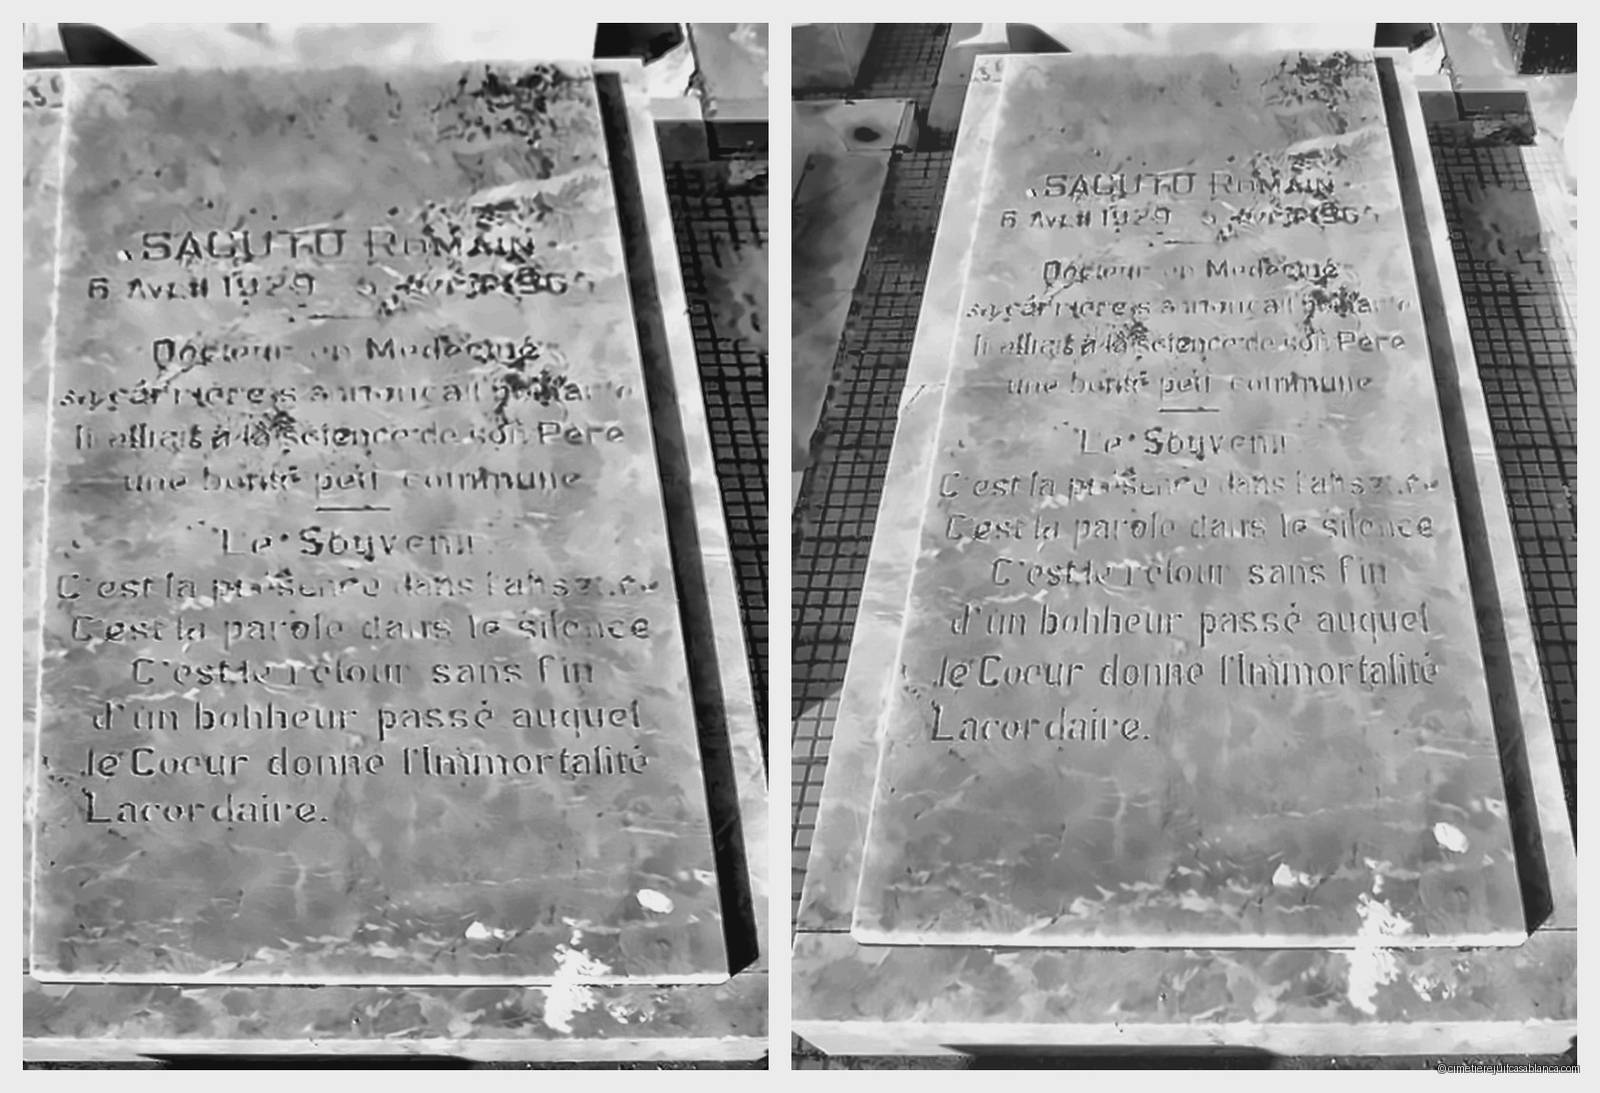 SAGUTO ROMAIN
6 AVRIL 1929
Docteur en Medecine
sa carrière s'annonçait
Il alliait à la science de son Père
une bonté peu commune
Le Souvenir
C'est la présence dans l'absence
C'est la parole dans le silence
C'est le retour sans fin
d'un bonheur passé auquel
le Coeur donne l'Immortalité
Lacordaire.
SAGUTO ROMAIN
6 AVRIL 1929
Docteur en Medecine
sa carrière s'annonçait
Il alliait à la science de son Père
une bonté peu commune
Le Souvenir
C'est la présence dans l'absence
C'est la parole dans le silence
C'est le retour sans fin
d'un bonheur passé auquel
le Coeur donne l'Immortalité
Lacordaire.
©cimetierejuifcasablanca.com